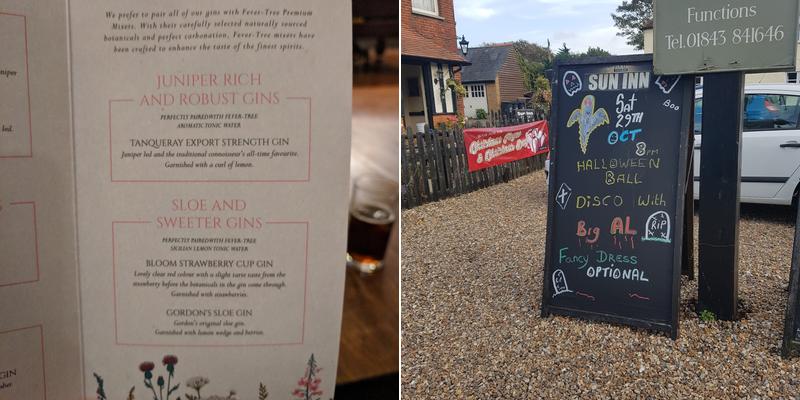 We prefer to pair all of our gins with Fever-Tree Premium
Mixers. With their carefully selected naturally sourced
botanicals and perfect carbonation, Fever-Tree mixers have
been crafted to enhance the taste of the finest spirits.
JUNIPER RICH
AND ROBUST GINS
PERFECTLY PAIRED WITH FEVER-TREE
AROMATIC TONIC WATER
TANQUERAY EXPORT STRENGTH GIN
Juniper led and the traditional connoisseur's all-time favourite.
Garnished with a curl of lemon.
SLOE AND
SWEETER GINS
PERFECTLY PAIRED WITH FEVER-TREE
SICILIAN LEMON TONIC WATER
BLOOM STRAWBERRY CUP GIN
Lovely clear red colour with a slight tarte taste from the
strawberry before the botanicals in the gin come through.
Garnished with strawberries.
GORDON'S SLOE GIN
Gordon's original sloe gin.
Garnished with lemon wedge and berries.
led.
GIN
Functions
Tel.01843 841646
SUN INN
Boo
Sat
29TH
OCT
8PM
HALLOWEEN
BALL
DISCO With
Big AL
RIP
Fancy DRESS
OPTIONAL
Christmas Fayre
& Christmas Day